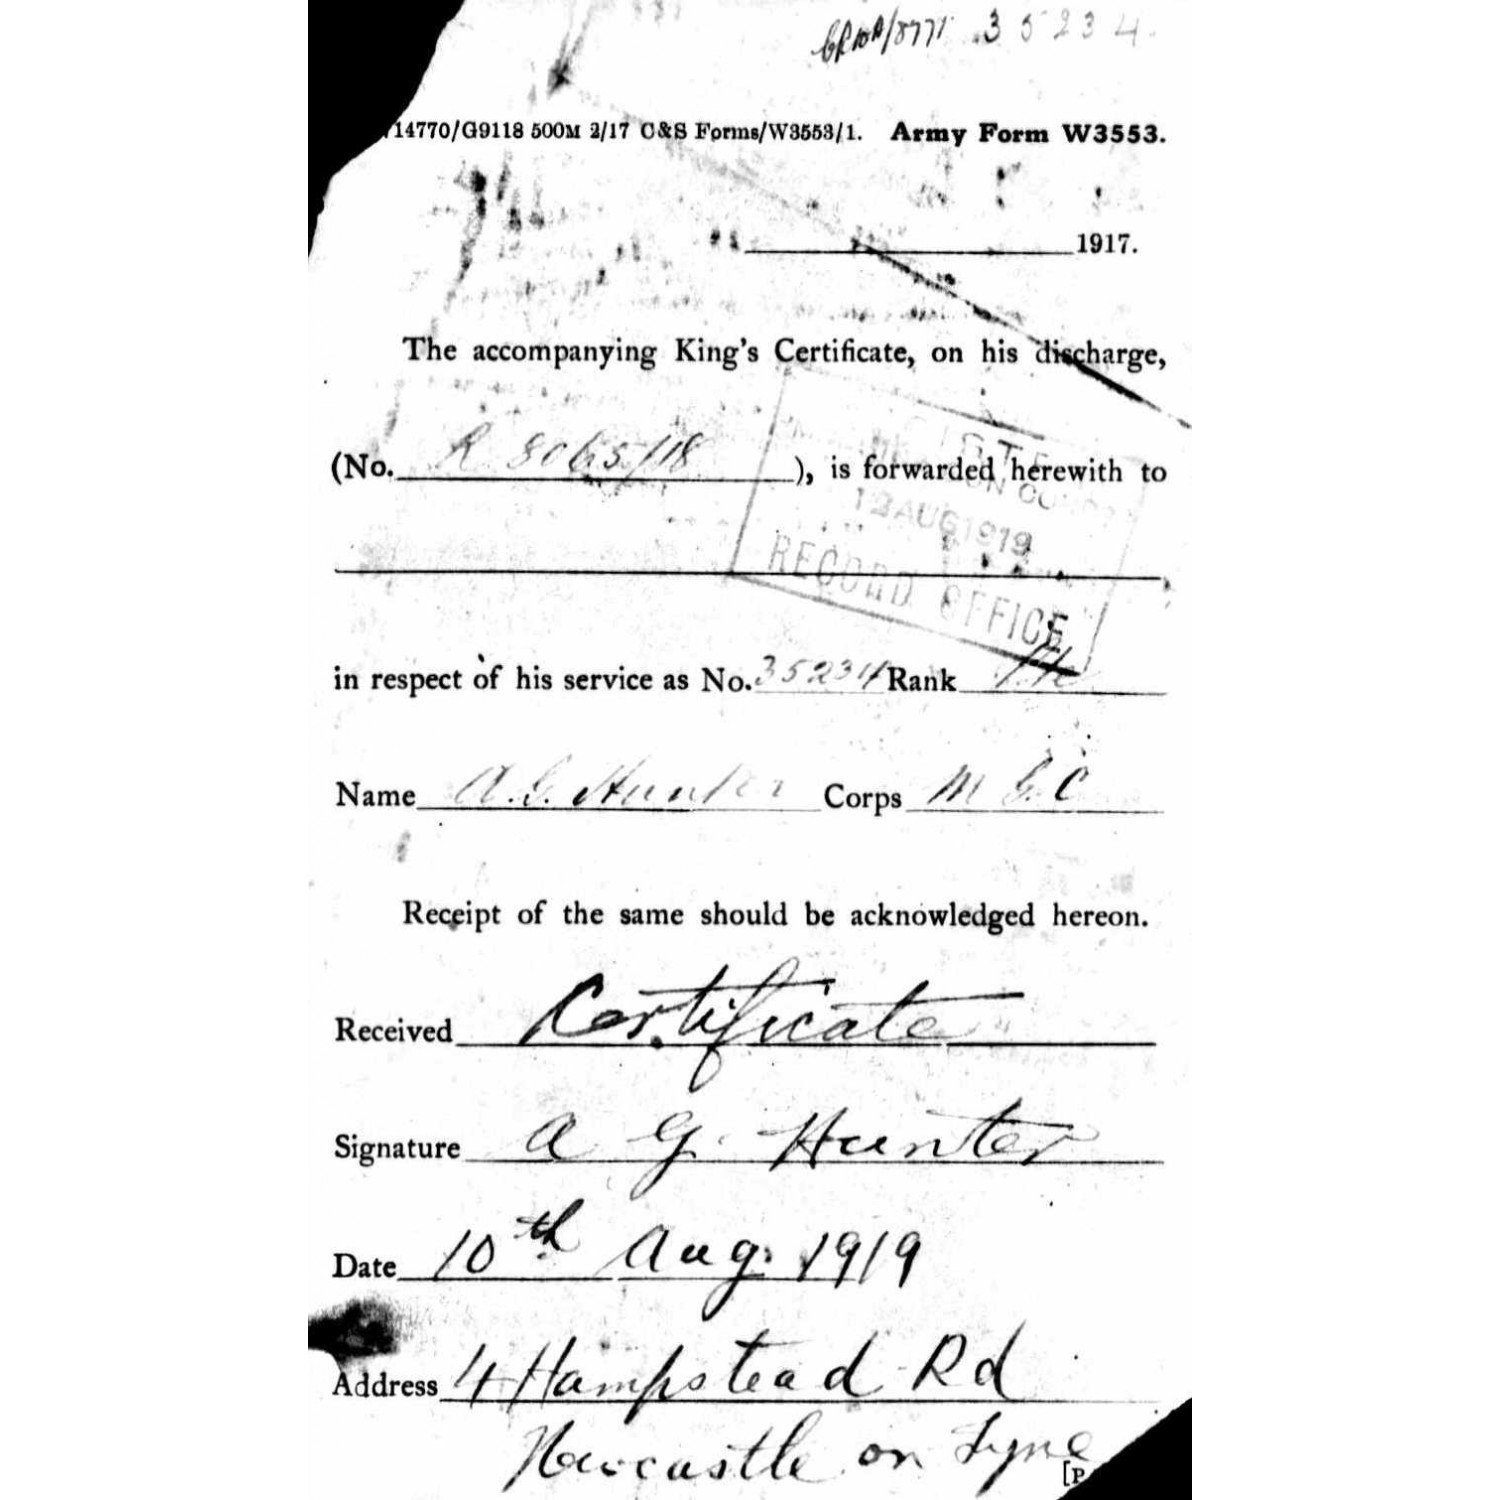 35234.
14770/G9118 500M 2/17 C&S Forms/W3553/1. Army Form W3553.
1917.
The accompanying King's Certificate, on his discharge,
(No. R 8065/18), is forwarded herewith to
12 AUG 1919
RECORD OFFICE
in respect of his service as No. 35234 Rank Pte
Name A.G. Hunter Corps M G C
Receipt of the same should be acknowledged hereon.
Received Certificate
Signature A G. Hunter
Date 10th Aug. 1919
Address 4 Hampstead Rd
Newcastle on Tyne
[P